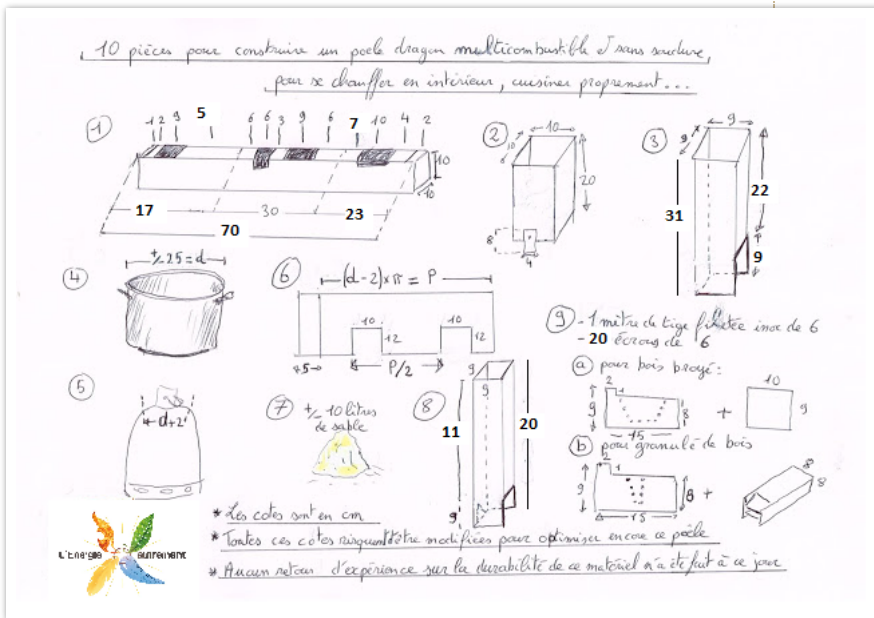 10 pièces pour construire un poële dragon multicombustible et sans soudure,
pour se chauffer en intérieur, cuisiner proprement...
①
1 2 9 5 6 6 3 9 6 7 10 4 2
10
10
17 30 23
70
②
10
10
20
8
4
③
9
9
31
22
9
④
+/- 25 = d
⑥
(d-2)×π = P
10 10
12 12
5
P/2
⑤
d+2
⑦
+/- 10 litres
de sable
⑧
9
9
11
20
9
⑨ - 1 mètre de tige filetée inox de 6
- 20 écrous de 6
ⓐ pour bois broyé:
2 1
9
8
15
+
10
9
ⓑ pour granulé de bois
2 1
9
8
15
+
8
8
L'Energie autrement
* Les cotes sont en cm
* Toutes ces cotes risquent d'être modifiées pour optimiser encore ce poêle
* Aucun retour d'expérience sur la durabilité de ce matériel n'a été fait à ce jour